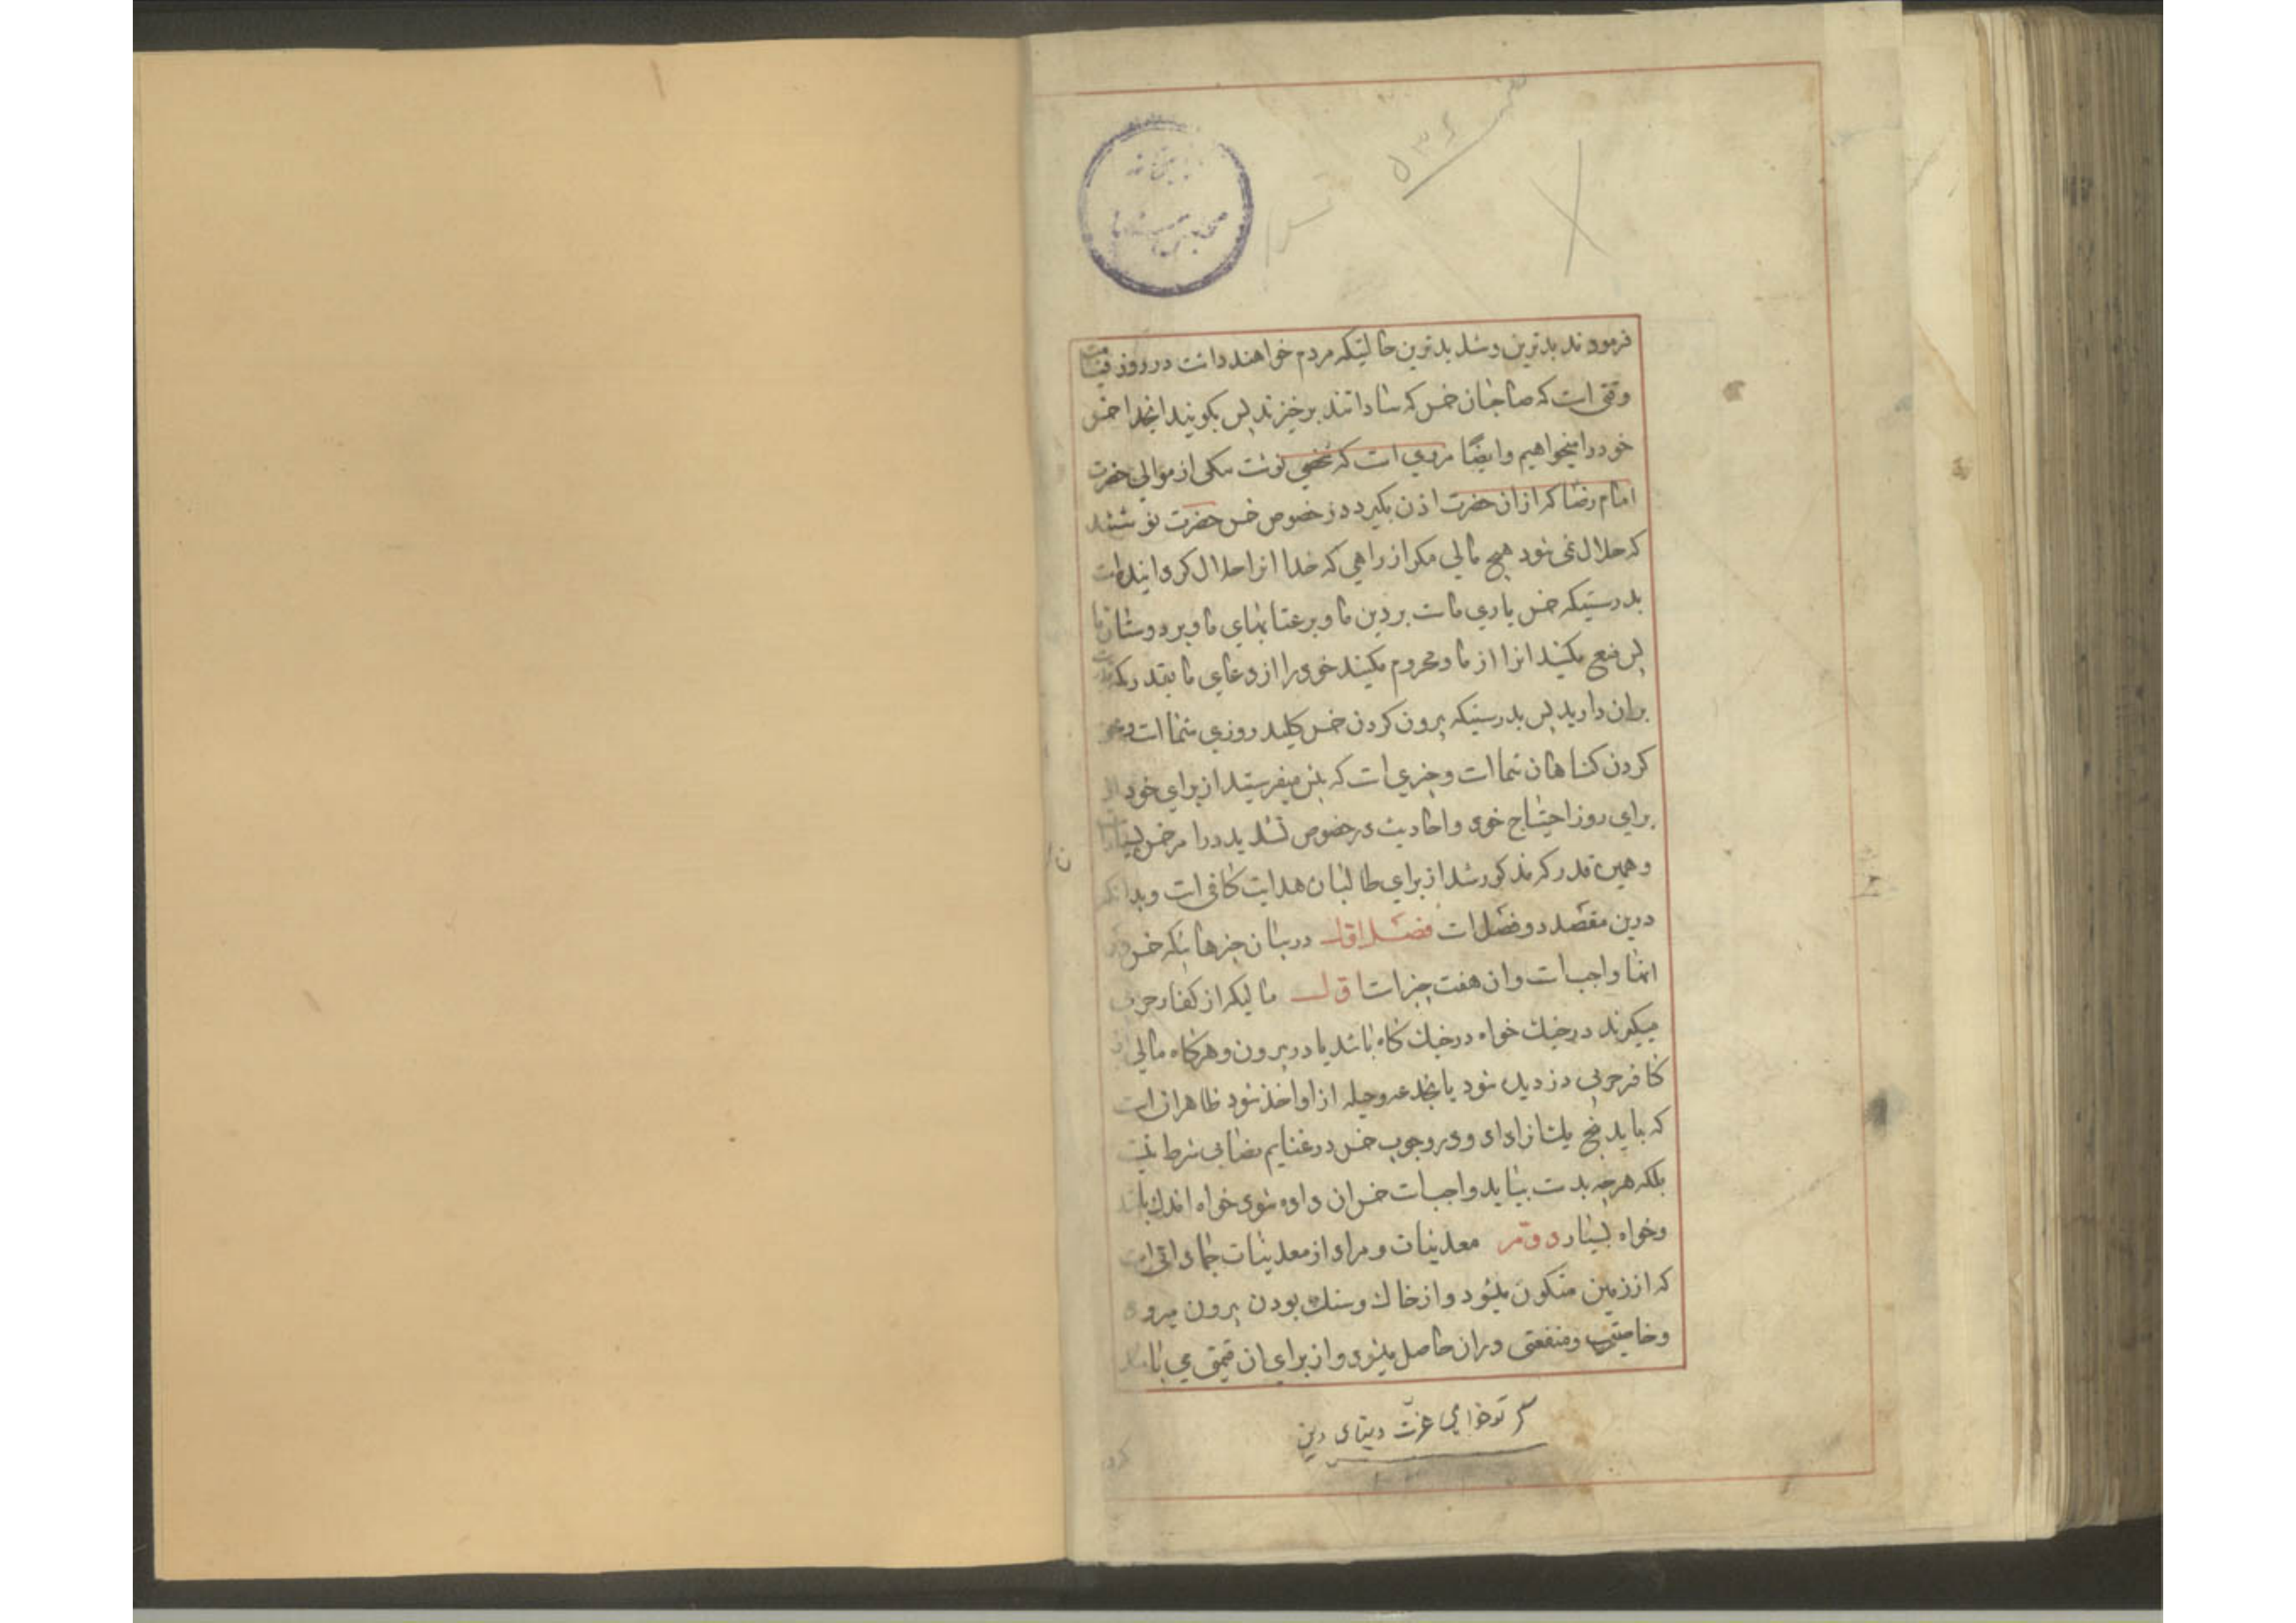 ۵۳۶
فرمودند بدترین و شدیدترین حالتیکه مردم خواهند داشت در روز قیامت
وقتی است که صاحبان خمس که ساداتند برخیزند پس بگویند خداوندا خمس
خود را میخواهیم و ایضا مروی است که شخصی نوشت بیکی از موالی حضرت
امام رضا که از ان حضرت اذن بگیرد در خصوص خمس حضرت نوشتند
که حلال نمی شود هیچ مالی مکر از راهی که خدا انرا حلال کردانیده است
بدرستیکه خمس یاری ماست بر دین ما و بر عیالهای ما و بر دوستان ما
پس منع مکنید انرا از ما و محروم مکنید خود را از دعای ما بقدریکه قدرت
بران دارید پس بدرستیکه بیرون کردن خمس کلید روزی شما است و محو
کردن کناهان شما است و چیزی است که پیش میفرستید از برای خود از
برای روز احتیاج خود و احادیث در خصوص تشدید در امر خمس بسیار است
و همین قدر که مذکور شد از برای طالبان هدایت کافی است و بدانکه
درین مقصد دو فصل است فصل اول در بیان چیزهائیکه خمس در
انها واجب است و ان هفت چیز است اول مالیکه از کفار حربی
میکیرند در جنک خواه در جنک کاه باشد یا در بیرون و هرکاه مالی از
کافر حربی دزدیده شود یا بخدعه و حیله از او اخذ شود ظاهر ان است
که باید پنج یک انرا داد و در وجوب خمس در غنایم نصابی شرط نیست
بلکه هرچه بدست بیاید واجب است خمس ان داده شود خواه اندک باشد
و خواه بسیار دویم معدنیات و مراد از معدنیات جماداتی است
که از زمین متکون میشود و از خاک و سنک بودن بیرون میرود
و خاصیتی و منفعتی دران حاصل میشود و از برای ان قیمتی می باشد
کر تو خواهی عزت دنیای دین